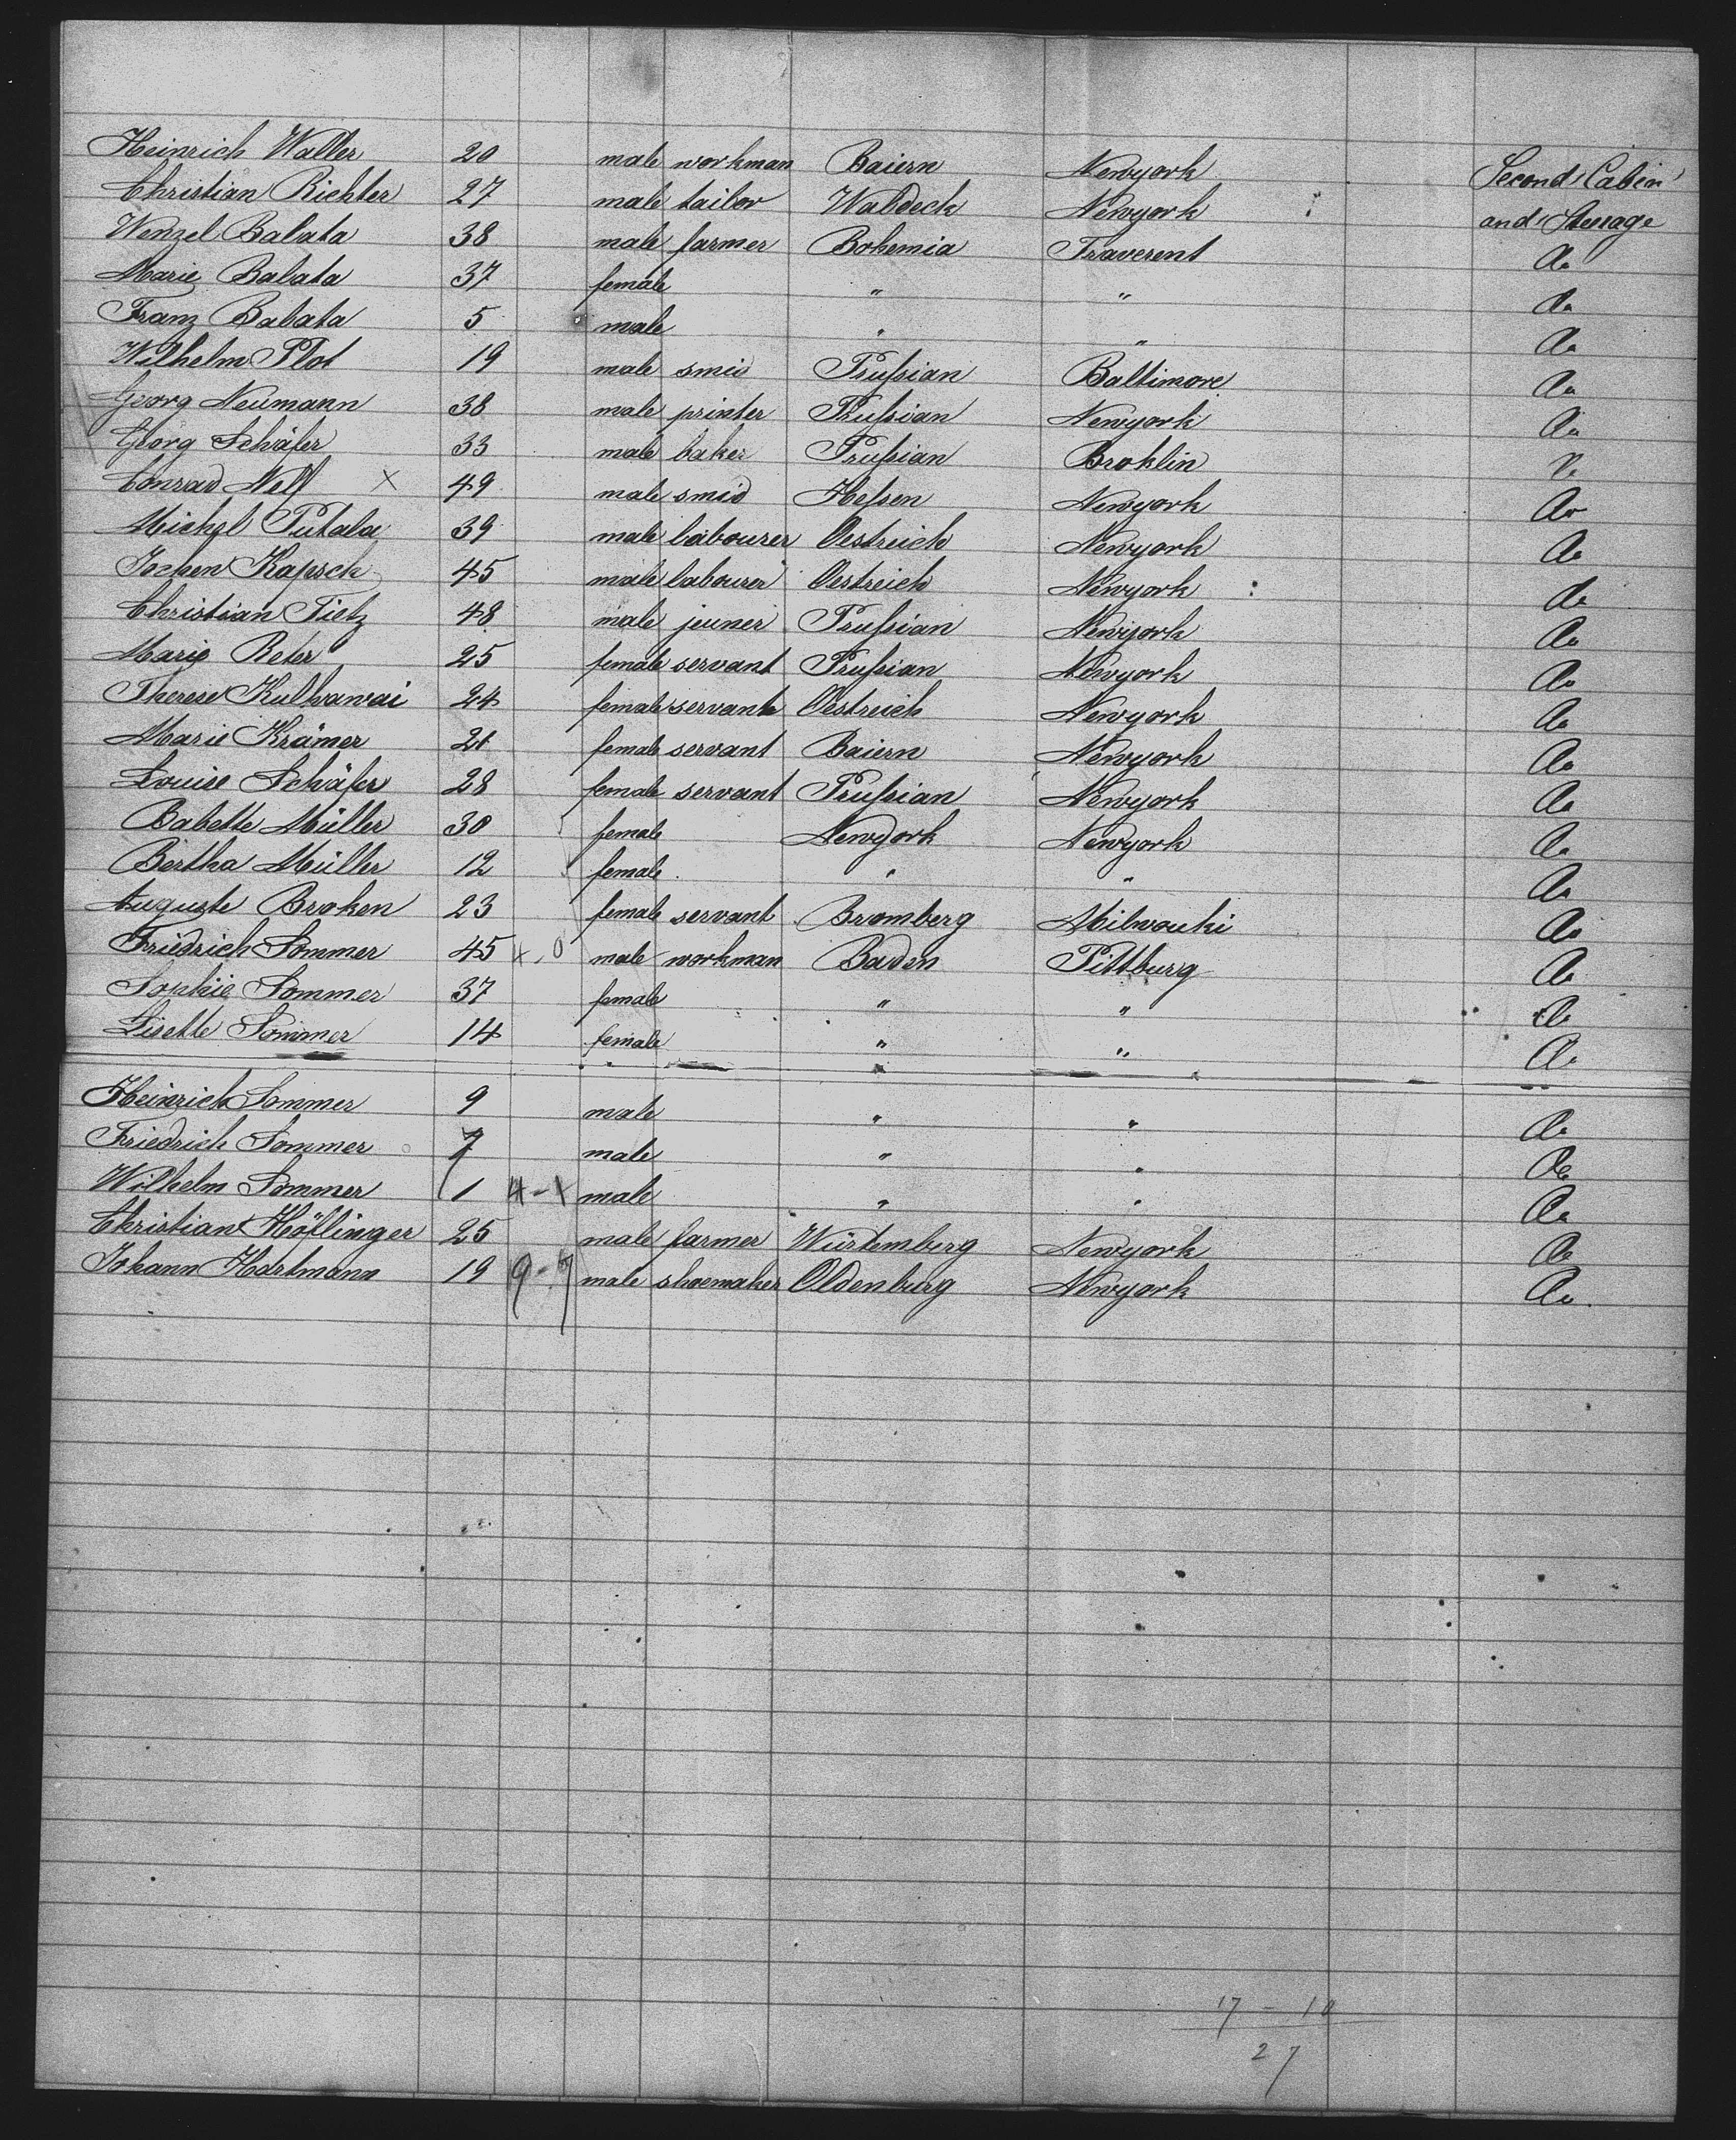 Heinrich Waller 20 male workman Baiern Newyork Second Cabin
Christian Richter 27 male tailor Waldeck Newyork and Steerage
Wenzel Balata 38 male farmer Bohemia Traverent do
Marie Balata 37 female " " do
Franz Balata 5 male " " do
Wilhelm Plot 19 male smid Prußian Baltimore do
Georg Neumann 38 male printer Prußian Newyork do
Georg Schäfer 33 male baker Prußian Broklin do
Conrad Nell X 49 male smid Heßen Newyork do
Michel Putala 39 male labourer Oestreich Newyork do
Jochen Kapsch 45 male labourer Oestreich Newyork do
Christian Tietz 48 male jeuner Prußian Newyork do
Marie Reter 25 female servant Prußian Newyork do
Therese Kulhawai 24 female servant Oestreich Newyork do
Marie Krämer 21 female servant Baiern Newyork do
Louise Schäfer 28 female servant Prußian Newyork do
Babette Müller 30 female Newyork Newyork do
Bertha Müller 12 female " " do
Auguste Broken 23 female servant Bromberg Milwouki do
Friedrich Sommer 45 male workman Baden Pittburg do
Sophie Sommer 37 female " " do
Lisette Sommer 14 female " " do
Heinrich Sommer 9 male " " do
Friedrich Sommer 7 male " " do
Wilhelm Sommer 1 4-1 male " " do
Christian Höflinger 25 male farmer Würtemberg Newyork do
Johann Hartmann 19 9-7 male shoemaker Oldenburg Newyork do
17 - 10
27